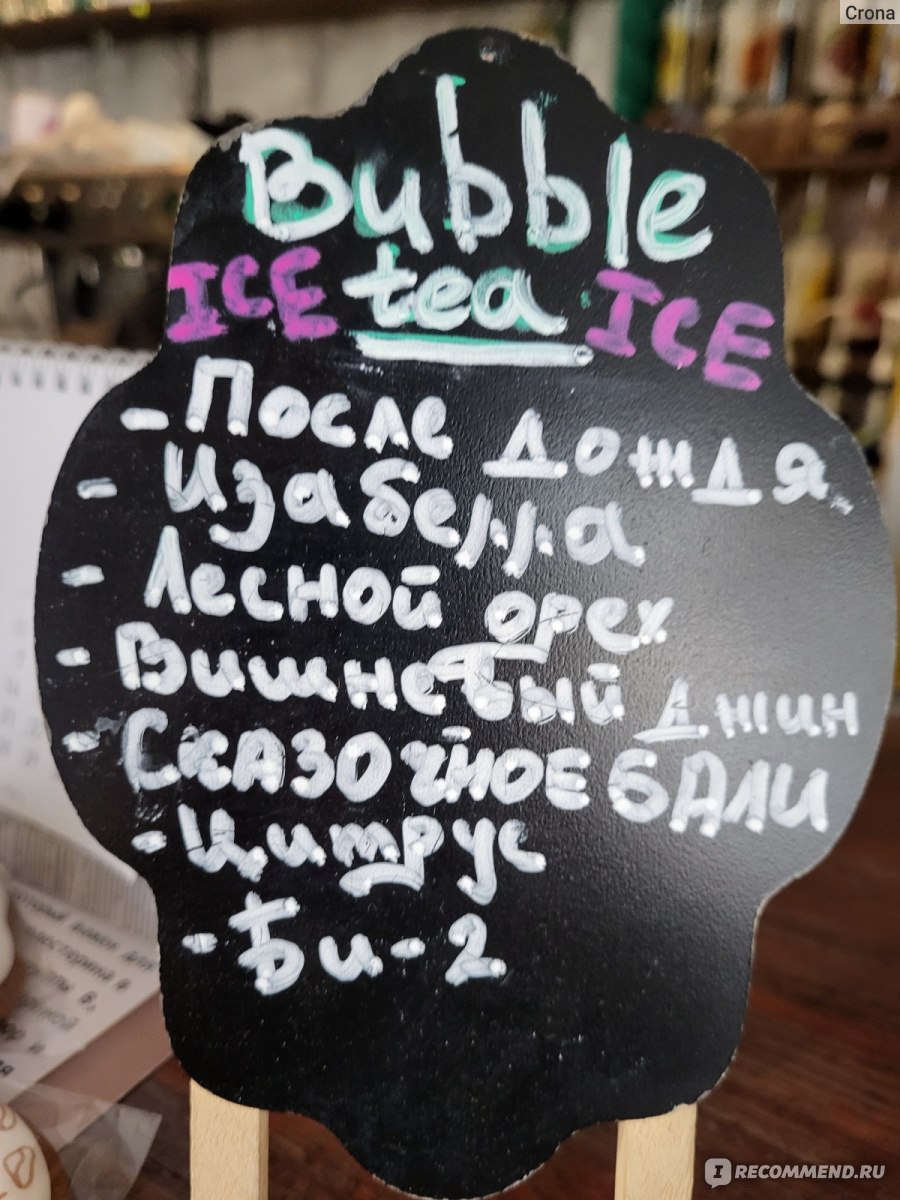 Crona
Bubble
ICE tea ICE
- После дождя
- Изабелла
- Лесной орех
- Вишневый джин
- СКАЗОЧНОЕ БАЛИ
- Цитрус
- Би-2
IRECOMMEND.RU